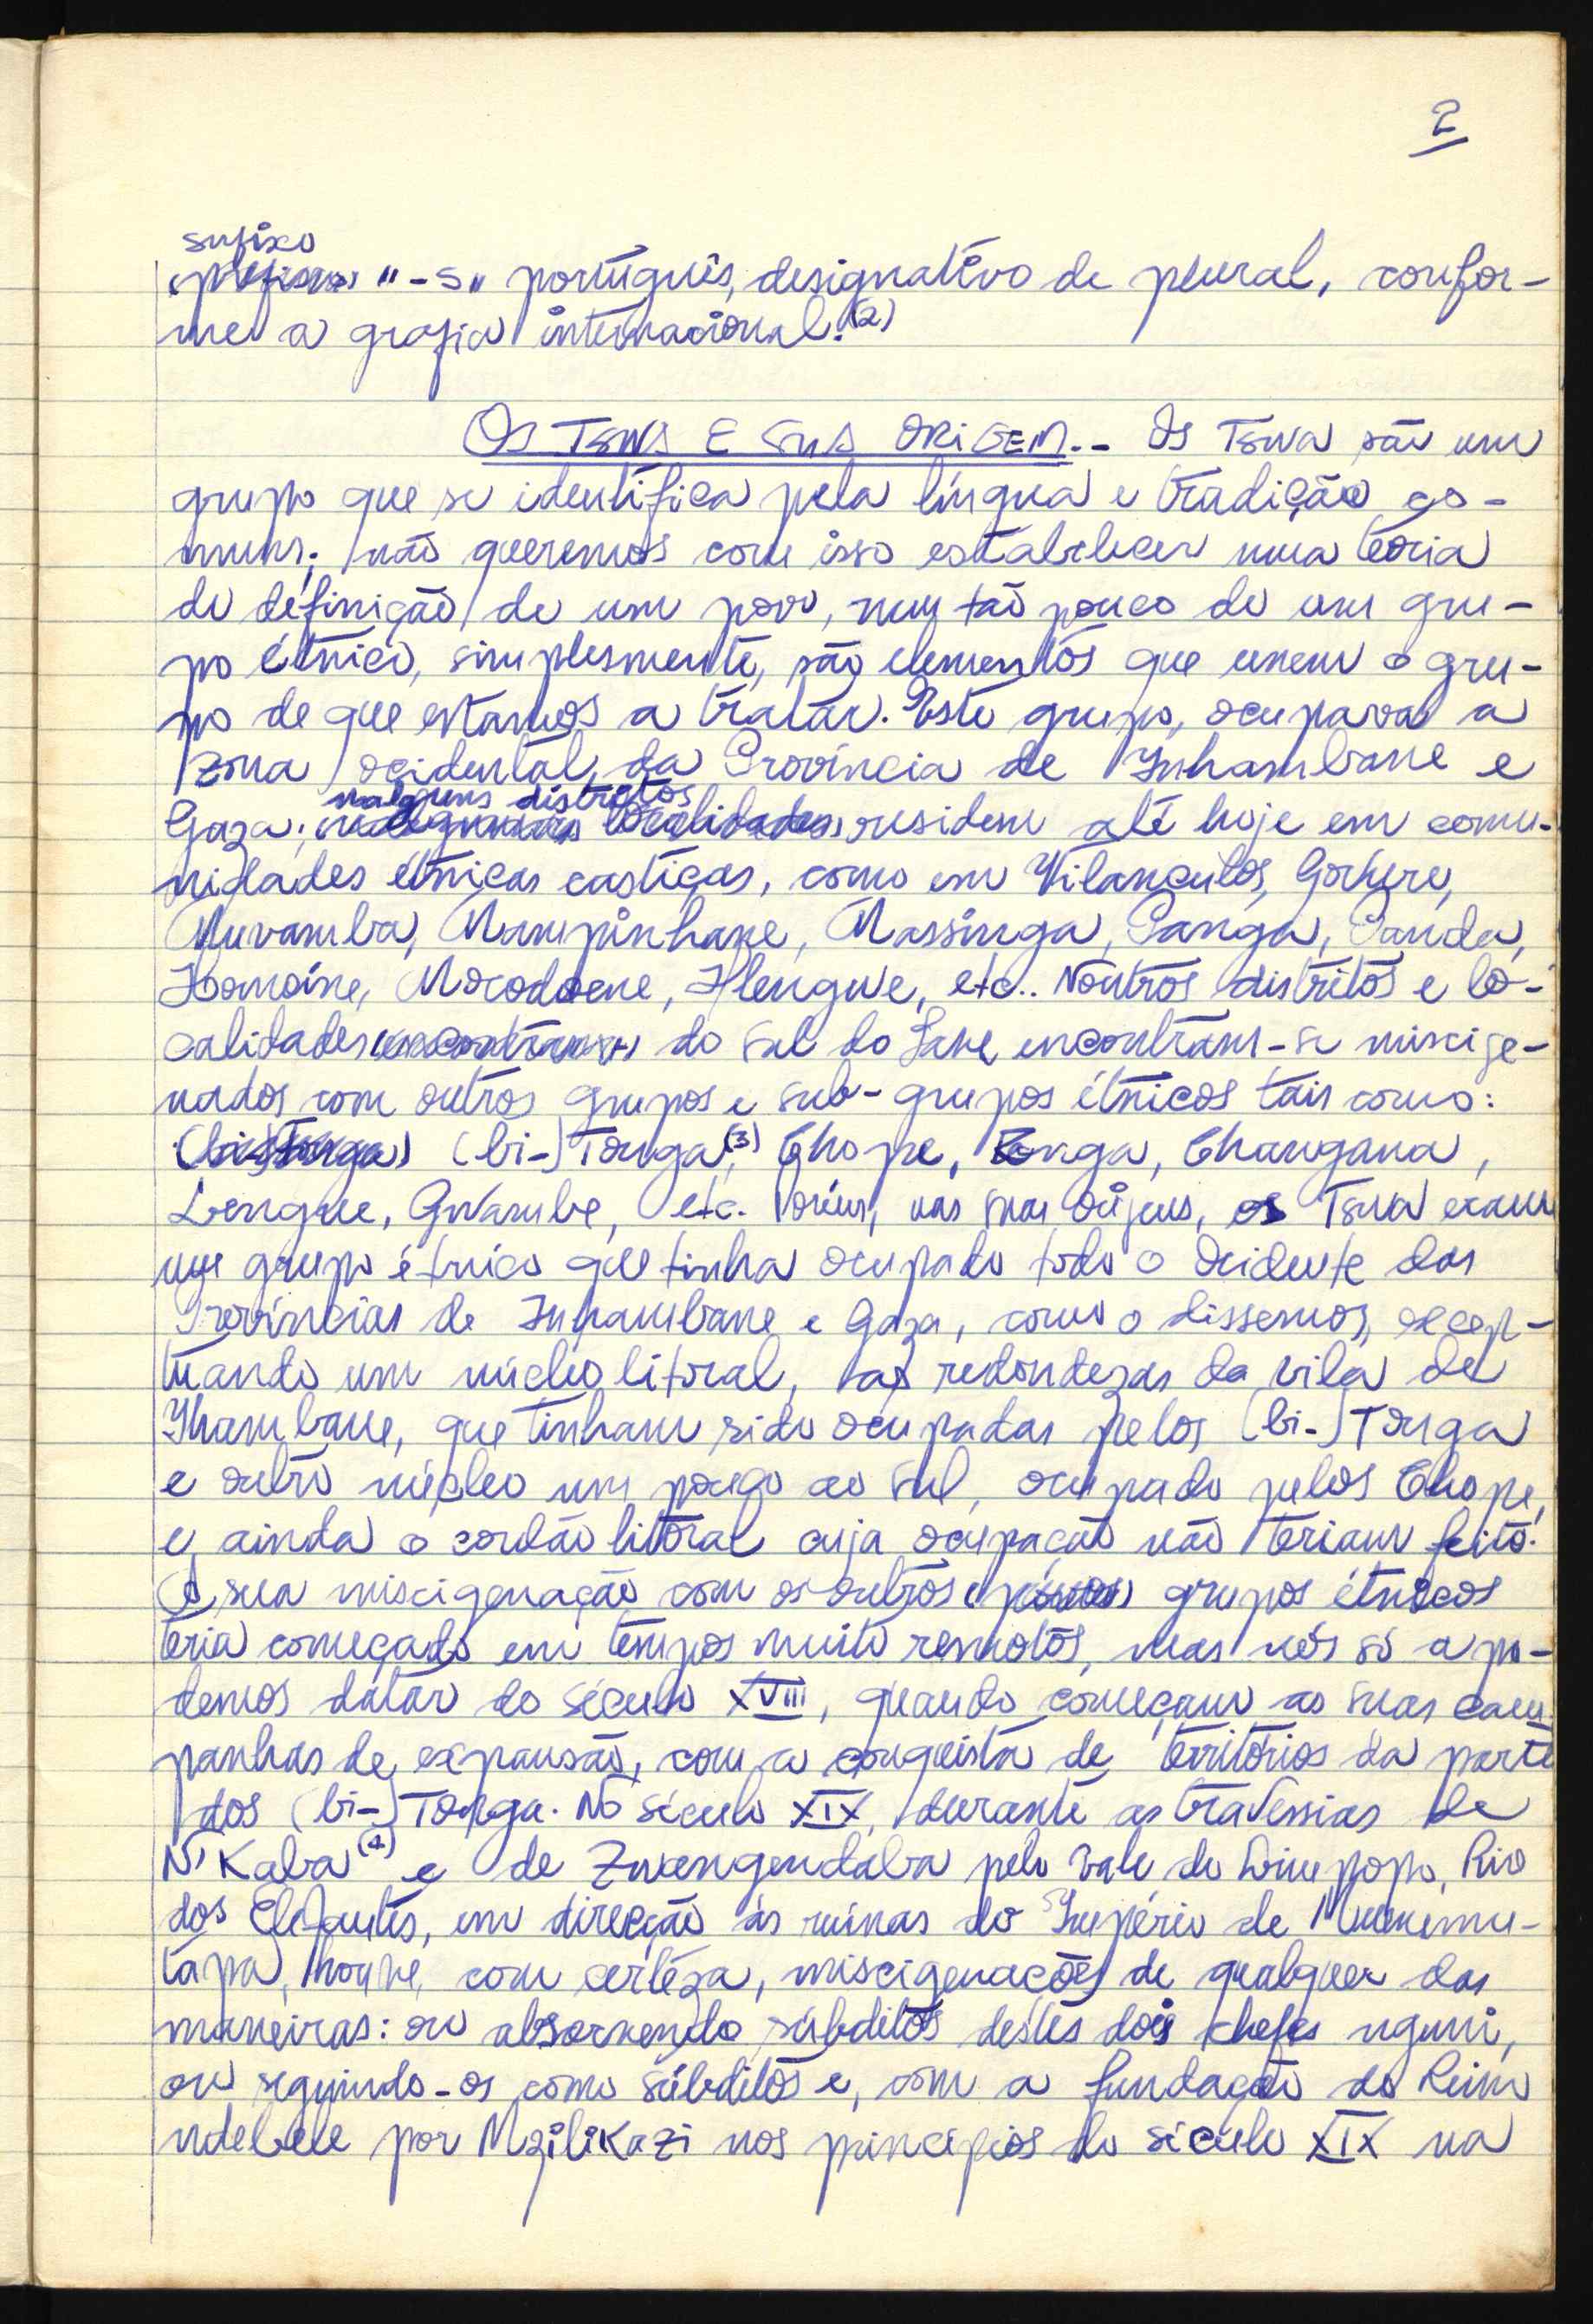 2
sufixo
(prefixo) "-s" português, designativo de plural, confor-
me a grafia internacional.(2)
Os TSWA E SUA ORIGEM.- Os Tswa são um
grupo que se identifica pela língua e tradição co-
muns; não queremos com isso estabelecer uma teoria
de definição de um povo, nem tão pouco de um gru-
po étnico, simplesmente, são elementos que unem o gru-
po de que estamos a tratar. Este grupo, ocupava a
zona ocidental da Província de Inhambane e
nalguns distritos
Gaza; (nalgumas localidades) residem até hoje em comu-
nidades étnicas castiças, como em Vilanculos,
Muvamba, Mampinhane, Massinga, Panga, Panda,
Homoíne, Mocodoene, Hlengwe, etc.. Noutros distritos e lo-
calidades (encontram-se) do Sul do Save encontram-se miscige-
nados com outros grupos e sub-grupos étnicos tais como:
(bi-)Tonga (bi-)Tonga(3), Chope, Ronga, Changana,
Lengue, Gwambe, etc. Porém, nas suas origens, os Tswa eram
um grupo étnico que tinha ocupado todo o Ocidente das
Províncias de Inhambane e Gaza, como o dissemos, excep-
tuando um núcleo litoral, as redondezas da vila de
Ihambane, que tinham sido ocupadas pelos (bi-)Tonga
e outro núcleo um pouco ao Sul, ocupado pelos Chope,
e, ainda o cordão litoral cuja ocupação não teriam feito.
A sua miscigenação com os outros (povos) grupos étnicos
teria começado em tempos muito remotos, mas nós só a po-
demos datar do século XVIII, quando começam as suas cam-
panhas de expansão, com a conquista de territórios da parte
dos (bi-)Tonga. No século XIX, durante as travessias de
N'Kaba(4) e de Zwengendaba pelo Vale do Limpopo, Rio
dos Elefantes, em direcção às ruínas do Império de Muenemu-
tapa, houve, com certeza, miscigenações de qualquer das
maneiras: ou absorvendo súbditos destes dois chefes nguni,
ou seguindo-os como súbditos e, com a fundação do Reino
ndebele por Mzilikazi nos princípios do século XIX na